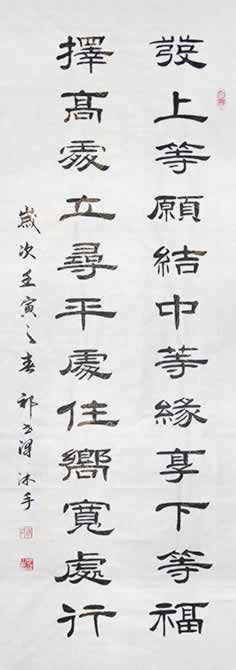 發上等願結中等緣享下等福
擇高處立尋平處住嚮寬處行
歲次壬寅之春
沐手